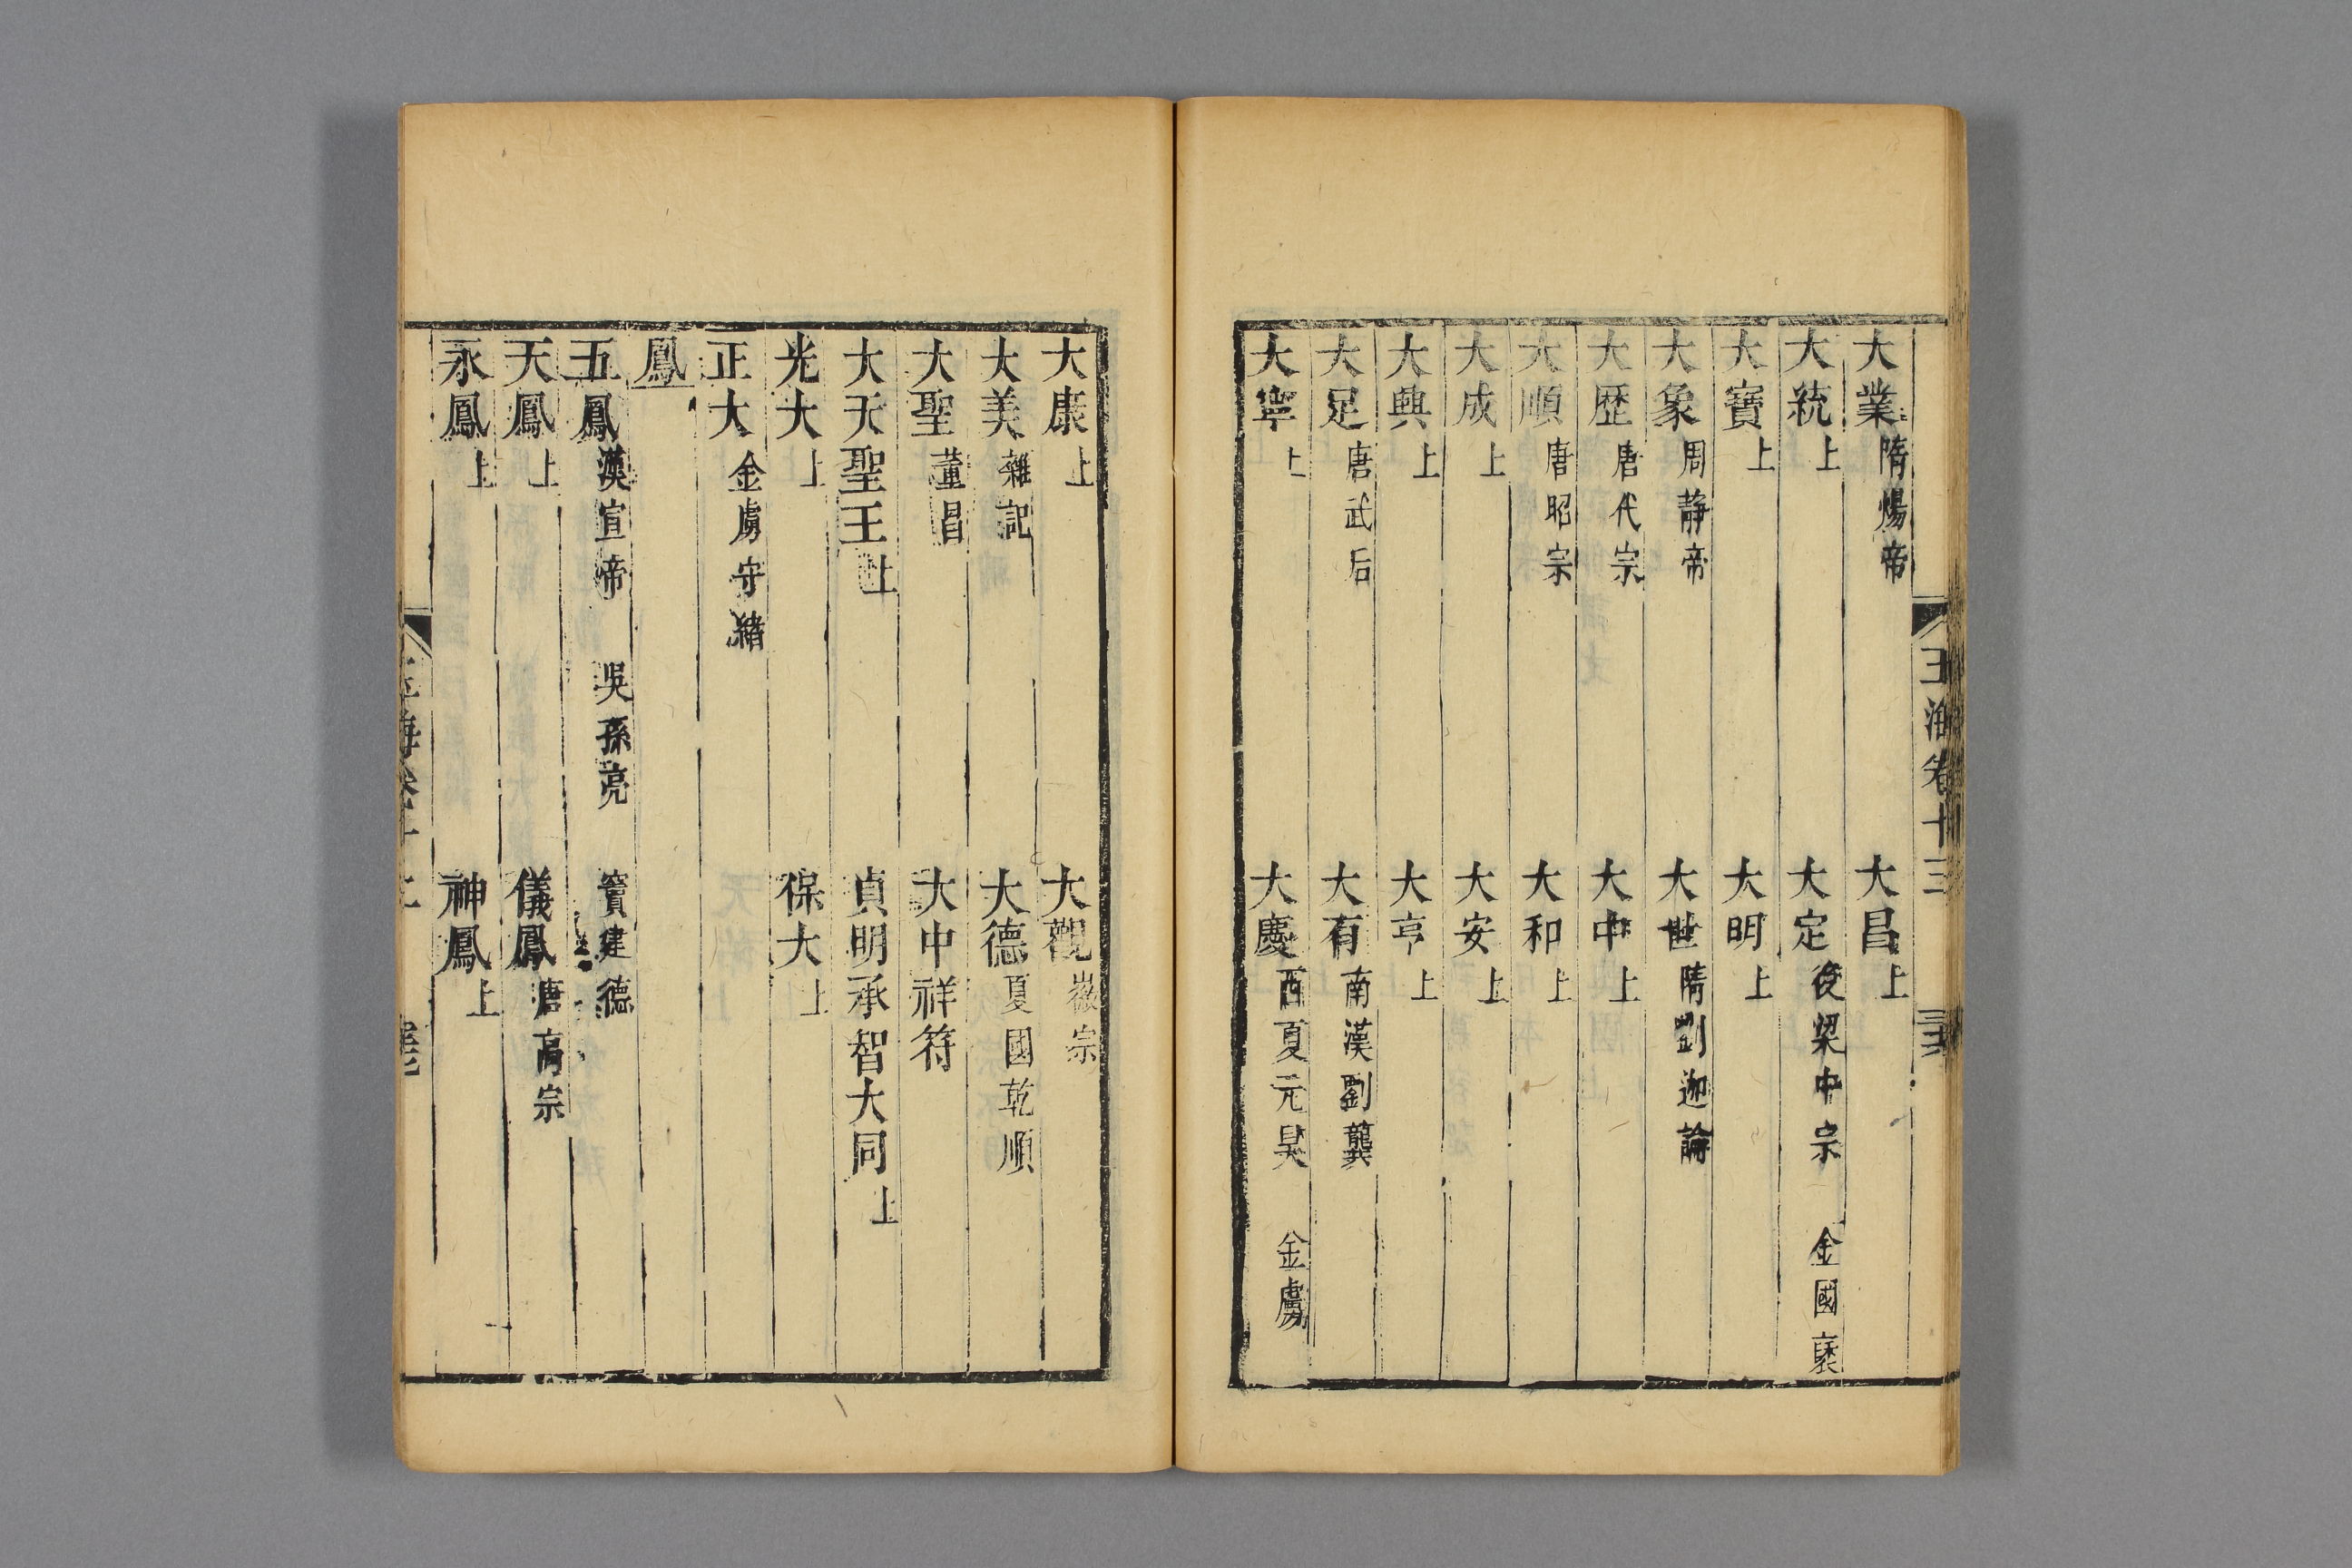 大業隋煬帝 大昌上
大統上 大定後梁中宗 金國褎
大寶上 大明上
大象周靜帝 大世隋劉迦論
大歷唐代宗 大中上
大順唐昭宗 大和上
大成上 大安上
大興上 大亨上
大足唐武后 大有南漢劉龑
大寧上 大慶西夏元昊 金虜
玉海卷十三
大康上 大觀徽宗
大美雜記 大德夏國乾順
大聖董昌 大中祥符
大天聖王上 貞明承智大同上
光大上 保大上
正大金虜守緒
鳳
五鳳漢宣帝 吳孫亮 竇建德
天鳳上 儀鳳唐高宗
永鳳上 神鳳上